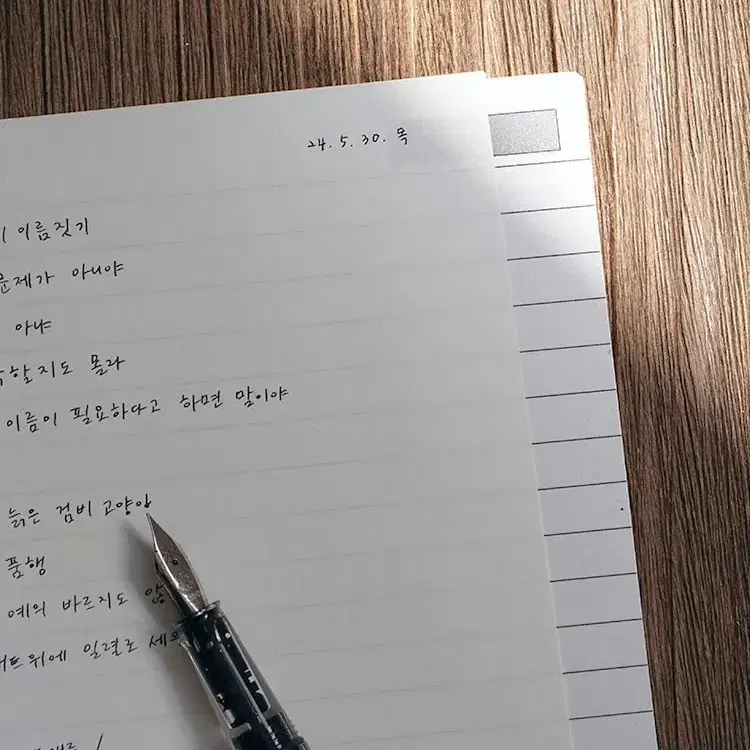 24. 5. 30. 목
이름짓기
아니야
아냐
몰라
이름이 필요하다고 하면 말이야
늙은 검비 고양이
품행
예의 바르지도
위에 일렬로